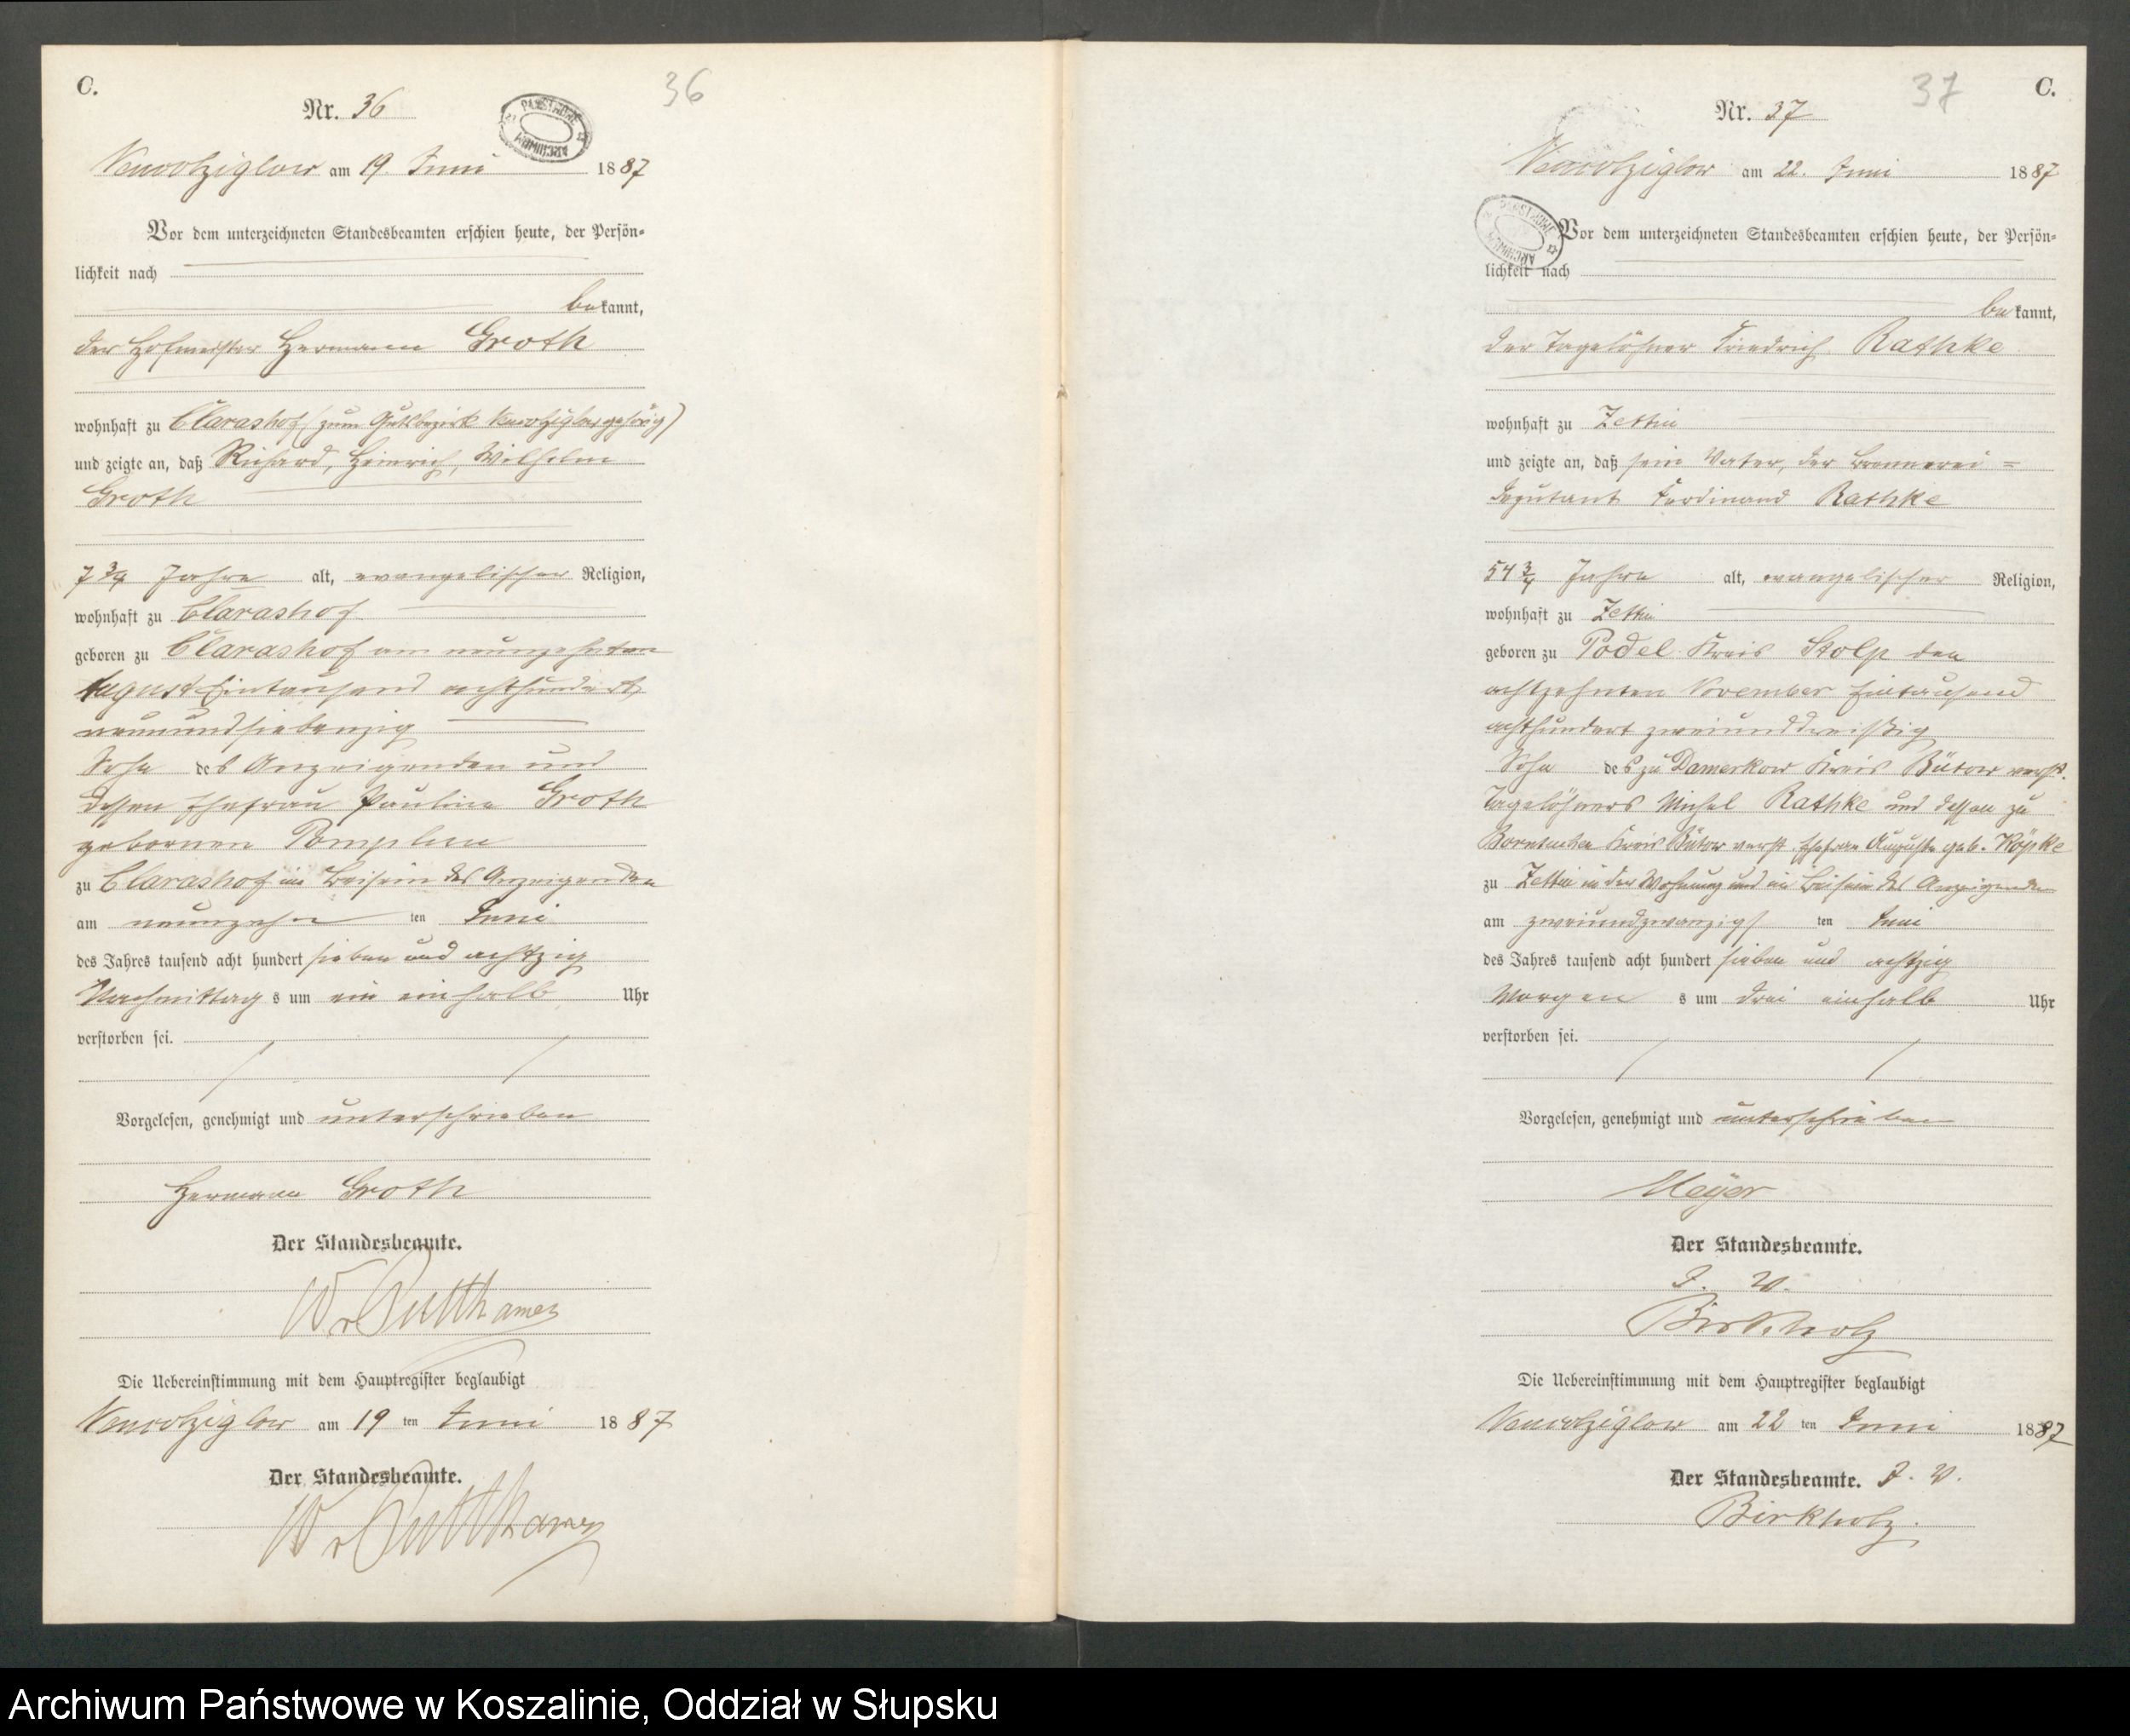 C.
36
Nr. 36
PAŃSTWOWE
ARCHIWUM
am 19. Juni 1887
Vor dem unterzeichneten Standesbeamten erschien heute, der Persön-
lichkeit nach
bekannt,
der Hofmeister Hermann Groth
wohnhaft zu Clarashof (zum Gutsbezirk gehörig)
und zeigte an, daß Richard, Heinrich, Wilhelm
Groth
7 3/4 Jahre alt, evangelischer Religion,
wohnhaft zu Clarashof
geboren zu Clarashof am neunzehnten
August Eintausend achthundert
neunundsiebenzig
Sohn des Anzeigenden und
dessen Ehefrau Pauline Groth
gebornen Pomplun
zu Clarashof im Beisein des Anzeigenden
am neunzehn ten Juni
des Jahres tausend acht hundert sieben und achtzig
Nachmittag s um ein einhalb Uhr
verstorben sei.
Vorgelesen, genehmigt und unterschrieben
Hermann Groth
Der Standesbeamte.
W v Puttkamer
Die Uebereinstimmung mit dem Hauptregister beglaubigt
am 19 ten Juni 1887
Der Standesbeamte.
W v Puttkamer
C.
37
Nr. 37
PAŃSTWOWE
ARCHIWUM
am 22. Juni 1887
Vor dem unterzeichneten Standesbeamten erschien heute, der Persön-
lichkeit nach
bekannt,
der Tagelöhner Friedrich Rathke
wohnhaft zu Zettin
und zeigte an, daß sein Vater, der Brennerei=
deputant Ferdinand Rathke
54 3/4 Jahre alt, evangelischer Religion,
wohnhaft zu Zettin
geboren zu Podel Kreis Stolp den
achtzehnten November Eintausend
achthundert zweiunddreißig
Sohn des zu Damerkow Kreis Bütow verst.
Tagelöhners Michel Rathke und dessen zu
Borntuchen Kreis Bütow verst. Ehefrau Auguste geb. Köpke
zu Zettin in der Wohnung und im Beisein des Anzeigenden
am zweiundzwanzigs ten Juni
des Jahres tausend acht hundert sieben und achtzig
Morgen s um drei einhalb Uhr
verstorben sei.
Vorgelesen, genehmigt und unterschrieben
Meyer
Der Standesbeamte.
J. V.
Birkholz
Die Uebereinstimmung mit dem Hauptregister beglaubigt
am 22 ten Juni 1887
Der Standesbeamte. J. V.
Birkholz.
Archiwum Państwowe w Koszalinie, Oddział w Słupsku